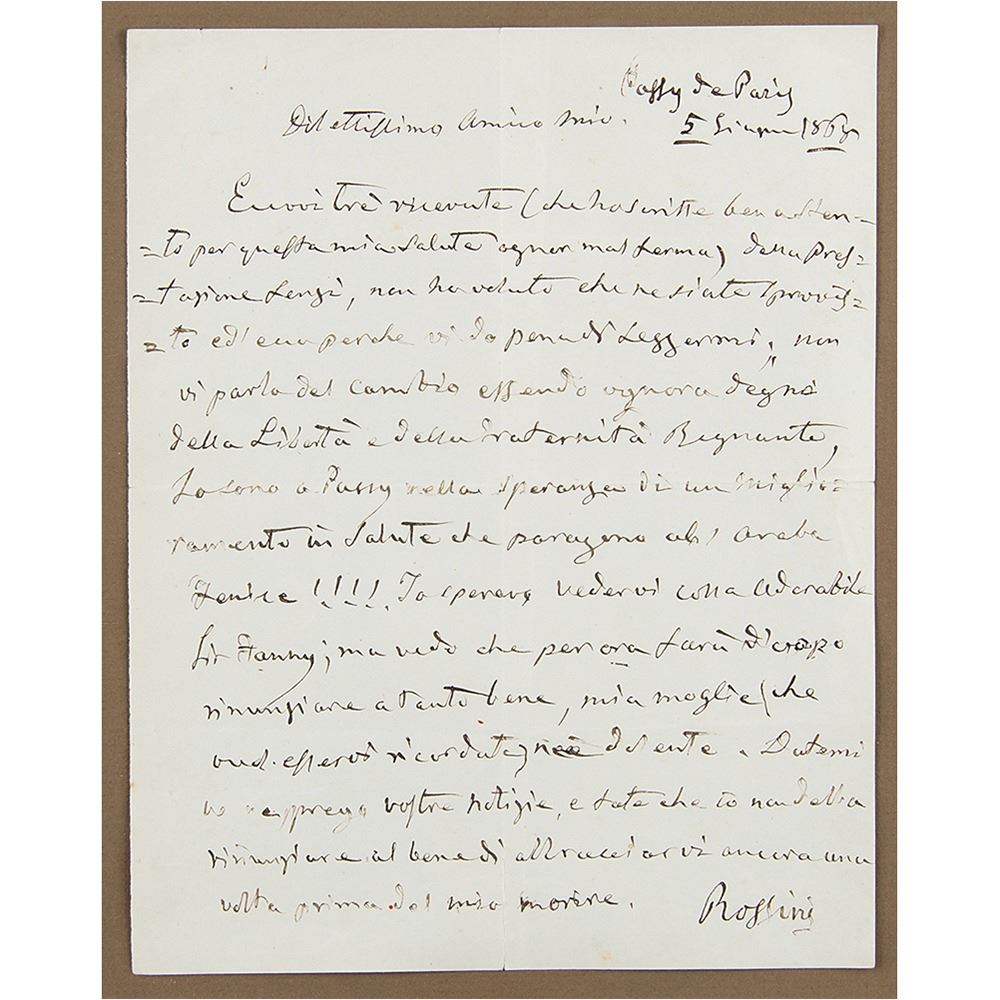 Passy de Paris
Dilettissimo Amico mio.
5 Giugno 1868
Eccovi tre ricevute (che ho scritte ben a sten=
=to per questa mia salute ognor mal ferma) della Pres=
=tazione Lenzi, non ho voluto che ne siate sprovvis=
=to ed ecco perche vi do pena di Leggermi; non
vi parlo del cambio essendo ognora degno
della Libertà e della fraternità Regnante,
Io sono a Passy nella Speranza di un miglio=
ramento in Salute che paragono all' araba
Fenice !!!! Io sperava vedervi colla adorabile
Sig Fanny; ma vedo che per ora farà d'uopo
rinunziare a tanto bene, mia moglie (che
vuol esservi ricordata) dolente. Datemi
ve ne pregо vostre notizie, e fate che io non debba
rinunziare al bene di abbracciarvi ancora una
volta prima del mio morire.
Rossini